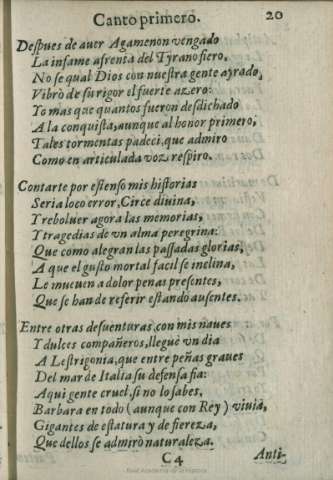 Canto primero. 20
Despues de auer Agamenon vengado
La infame afrenta del Tyrano fiero,
No se qual Dios con nuestra gente ayrado,
Vibrò de su rigor el fuerte azero:
Yo mas que quantos fueron desdichado
A la conquista, aunque al honor primero,
Tales tormentas padeci, que admiro
Como en articulada voz respiro.
Contarte por estenso mis historias
Seria loco error, Circe diuina,
Y reboluer agora las memorias,
Y tragedias de vn alma peregrina:
Que como alegran las passadas glorias,
A que el gusto mortal facil se inclina,
Le mueuen a dolor penas presentes,
Que se han de referir estando ausentes.
Entre otras desuenturas, con mis naues
Y dulces compañeros, lleguè vn dia
A Lestrigonia, que entre peñas graues
Del mar de Italia su defensa fia:
Aqui gente cruel, si no lo sabes,
Barbara en todo (aunque con Rey) viuia,
Gigantes de estatura y de fiereza,
Que dellos se admirò naturaleza.
C4 Anti-
Real Academia de la Historia